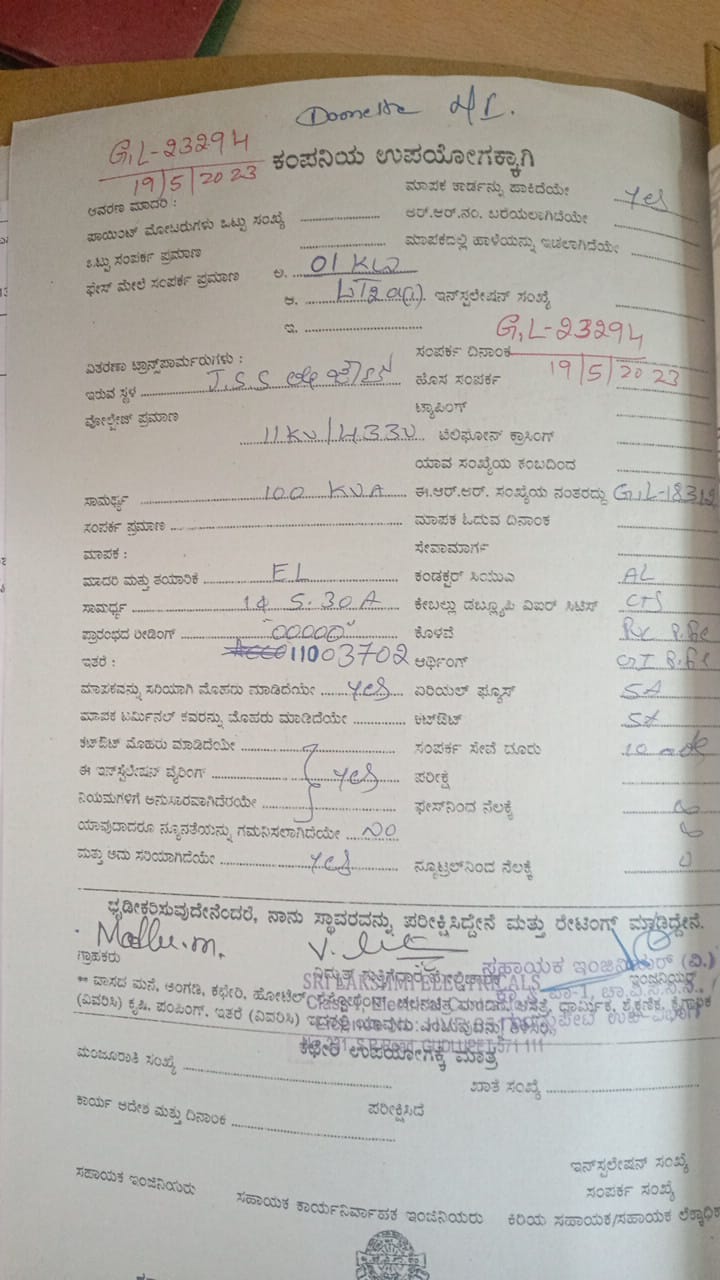 G,L-23294
19/5/2023
ಕಂಪನಿಯ ಉಪಯೋಗಕ್ಕಾಗಿ
ಆವರಣ ಮಾದರಿ :
ಮಾಪಕ ಕಾರ್ಡನ್ನು ಹಾಕಿದೆಯೇ Yes
ಪಾಯಿಂಟ್ ಮೋಟರುಗಳು ಒಟ್ಟು ಸಂಖ್ಯೆ
ಆರ್.ಆರ್.ನಂ. ಬರೆಯಲಾಗಿದೆಯೇ
ಒಟ್ಟು ಸಂಪರ್ಕ ಪ್ರಮಾಣ
ಮಾಪಕದಲ್ಲಿ ಹಾಳೆಯನ್ನು ಇಡಲಾಗಿದೆಯೇ
ಫೇಸ್ ಮೇಲೆ ಸಂಪರ್ಕ ಪ್ರಮಾಣ ಅ. 01 KW
ಆ. ಇನ್‌ಸ್ಟಲೇಷನ್ ಸಂಖ್ಯೆ
ಇ.
G,L-23294
ವಿತರಣಾ ಟ್ರಾನ್ಸ್‌ಪಾರ್ಮರುಗಳು : ಸಂಪರ್ಕ ದಿನಾಂಕ 19/5/2023
ಇರುವ ಸ್ಥಳ J.S.S ಹೊಸ ಸಂಪರ್ಕ
ವೋಲ್ಟೇಜ್ ಪ್ರಮಾಣ ಟ್ಯಾಪಿಂಗ್
11KV/433V ಟೆಲಿಫೋನ್ ಕ್ರಾಸಿಂಗ್
ಯಾವ ಸಂಖ್ಯೆಯ ಕಂಬದಿಂದ
ಸಾಮರ್ಥ್ಯ 100 KVA ಈ.ಆರ್.ಆರ್. ಸಂಖ್ಯೆಯ ನಂತರದ್ದು
ಸಂಪರ್ಕ ಪ್ರಮಾಣ ಮಾಪಕ ಓದುವ ದಿನಾಂಕ
ಮಾಪಕ : ಸೇವಾಮಾರ್ಗ
ಮಾದರಿ ಮತ್ತು ತಯಾರಿಕೆ EL ಕಂಡಕ್ಟರ್ ಸಿಯುಎ AL
ಸಾಮರ್ಥ್ಯ 1φ 5-30A ಕೇಬಲ್ಲು ಡಬ್ಲ್ಯೂಪಿ ವಿಐರ್ ಸಿಟಿಎಸ್ CTS
ಪ್ರಾರಂಭದ ರೀಡಿಂಗ್ 00000 ಕೊಳವೆ
ಇತರೆ : 11003702 ಆರ್ಥಿಂಗ್
ಮಾಪಕವನ್ನು ಸರಿಯಾಗಿ ಮೊಹರು ಮಾಡಿದೆಯೇ yes ಏರಿಯಲ್ ಫ್ಯೂಸ್ 5A
ಮಾಪಕ ಟರ್ಮಿನಲ್ ಕವರನ್ನು ಮೊಹರು ಮಾಡಿದೆಯೇ ಕಟ್‌ಔಟ್ 5A
ಕಟ್‌ಔಟ್ ಮೊಹರು ಮಾಡಿದೆಯೇ ಸಂಪರ್ಕ ಸೇವೆ ದೂರು
ಈ ಇನ್‌ಸ್ಟಲೇಷನ್ ವೈರಿಂಗ್ yes ಪರೀಕ್ಷೆ
ನಿಯಮಗಳಿಗೆ ಅನುಸಾರವಾಗಿದೆರಯೇ ಫೇಸ್‌ನಿಂದ ನೆಲಕ್ಕೆ
ಯಾವುದಾದರೂ ನ್ಯೂನತೆಯನ್ನು ಗಮನಿಸಲಾಗಿದೆಯೇ NO
ಮತ್ತು ಅದು ಸರಿಯಾಗಿದೆಯೇ yes ನ್ಯೂಟ್ರಲ್‌ನಿಂದ ನೆಲಕ್ಕೆ
ಧೃಡೀಕರಿಸುವುದೇನೆಂದರೆ, ನಾನು ಸ್ಥಾವರವನ್ನು ಪರೀಕ್ಷಿಸಿದ್ದೇನೆ ಮತ್ತು ರೇಟಿಂಗ್ ಮಾಡಿದ್ದೇನೆ.
Madhu.m.
ಗ್ರಾಹಕರು ಸಹಾಯಕ ಇಂಜಿನಿಯರ್ (ವಿ.)
SRI LAKSHMI ELECTRICALS
** ವಾಸದ ಮನೆ, ಅಂಗಡಿ, ಕಛೇರಿ, ಹೋಟೆಲ್
(ವಿವರಿಸಿ) ಕೃಷಿ, ಪಂಪಿಂಗ್, ಇತರೆ (ವಿವರಿಸಿ)
ಕಛೇರಿ ಉಪಯೋಗಕ್ಕೆ ಮಾತ್ರ
ಮಂಜೂರಾತಿ ಸಂಖ್ಯೆ ಖಾತೆ ಸಂಖ್ಯೆ
ಕಾರ್ಯ ಆದೇಶ ಮತ್ತು ದಿನಾಂಕ ಪರೀಕ್ಷಿಸಿದೆ
ಇನ್‌ಸ್ಟಲೇಷನ್ ಸಂಖ್ಯೆ
ಸಂಪರ್ಕ ಸಂಖ್ಯೆ
ಸಹಾಯಕ ಇಂಜಿನಿಯರು ಸಹಾಯಕ ಕಾರ್ಯನಿರ್ವಾಹಕ ಇಂಜಿನಿಯರು ಕಿರಿಯ ಸಹಾಯಕ/ಸಹಾಯಕ